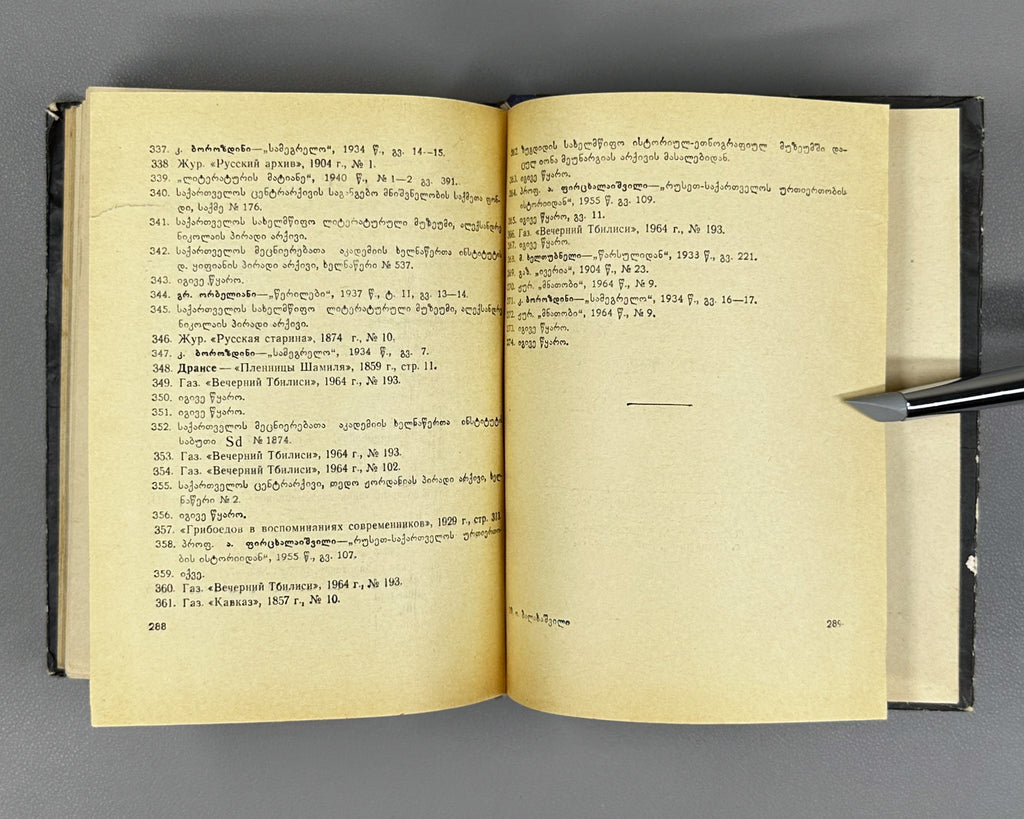 337. კ. ბოროზდინი—„სამეგრელო“, 1934 წ., გვ. 14—15.
338 Жур. «Русский архив», 1904 г., № 1.
339. „ლიტერატურის მატიანე“, 1940 წ., № 1—2 გვ. 391.
340. საქართველოს ცენტრარქივის საგანგებო მნიშვნელობის საქმეთა ფონ-
დი, საქმე № 176.
341. საქართველოს სახელმწიფო ლიტერატურული მუზეუმი, ალექსანდრე
ნიკოლაის პირადი არქივი.
342. საქართველოს მეცნიერებათა აკადემიის ხელნაწერთა ინსტიტუტი
დ. ყიფიანის პირადი არქივი, ხელნაწერი № 537.
343. იგივე წყარო.
344. გრ. ორბელიანი—„წერილები“, 1937 წ., ტ. II, გვ. 13—14.
345. საქართველოს სახელმწიფო ლიტერატურული მუზეუმი, ალექსანდრე
ნიკოლაის პირადი არქივი.
346. Жур. «Русская старина», 1874 г., № 10.
347. კ. ბოროზდინი—„სამეგრელო“, 1934 წ., გვ. 7.
348. Дрансе — «Пленницы Шамиля», 1859 г., стр. 11.
349. Газ. «Вечерний Тбилиси», 1964 г., № 193.
350. იგივე წყარო.
351. იგივე წყარო.
352. საქართველოს მეცნიერებათა აკადემიის ხელნაწერთა ინსტიტუტი
საბუთი Sd № 1874.
353. Газ. «Вечерний Тбилиси», 1964 г., № 193.
354. Газ. «Вечерний Тбилиси», 1964 г., № 102.
355. საქართველოს ცენტრარქივი, თედო ჟორდანიას პირადი არქივი, ხელ-
ნაწერი № 2.
356. იგივე წყარო.
357. «Грибоедов в воспоминаниях современников», 1929 г., стр.
358. პროფ. ა. ფირცხალაიშვილი—„რუსეთ-საქართველოს ურთიერთო-
ბის ისტორიიდან“, 1955 წ., გვ. 107.
359. იქვე.
360. Газ. «Вечерний Тбилиси», 1964 г., № 193.
361. Газ. «Кавказ», 1857 г., № 10.
288
362 ზუგდიდის სახელმწიფო ისტორიულ-ეთნოგრაფიულ მუზეუმში და-
ცულ იონა მეუნარგიას არქივის მასალებიდან.
363. იგივე წყარო.
364. პროფ. ა. ფირცხალაიშვილი—„რუსეთ-საქართველოს ურთიერთობის
ისტორიიდან“, 1955 წ. გვ. 109.
365. იგივე წყარო, გვ. 11.
366. Газ. «Вечерний Тбилиси», 1964 г., № 193.
367. იგივე წყარო.
368. მ. ხელთუბნელი—„წარსულიდან“, 1933 წ., გვ. 221.
369. გაზ. „ივერია“, 1904 წ., № 23.
370. ჟურ. „მნათობი“, 1964 წ., № 9.
371. კ. ბოროზდინი—„სამეგრელო“, 1934 წ., გვ. 16—17.
372. ჟურ. „მნათობი“, 1964 წ., № 9.
373. იგივე წყარო.
374. იგივე წყარო.
ი. ბალახაშვილი
289